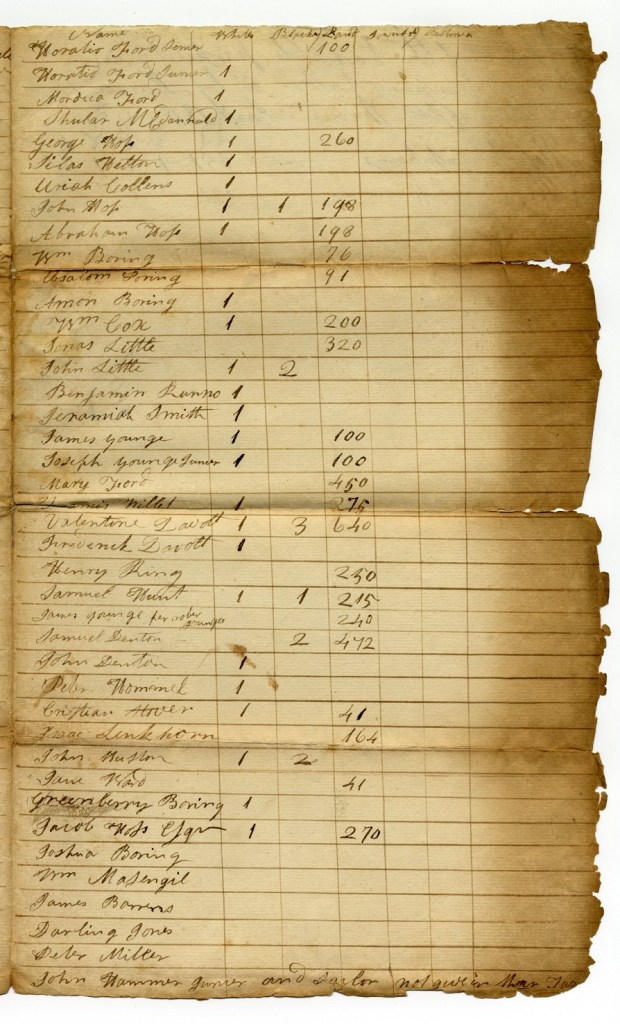 Name Whites Blacks Land
Horatio Ford Senier 100
Horatio Ford Junier 1
Mordica Ford 1
Shular McDannald 1
George Hos 260 1
Silas Hetton 1
Uriah Collens 1
John Hos 1 1 198
Abraham Hos 1 198
Wm Boring 76
Absalom Boring 91
Amon Boring 1
Wm Cox 1 200
Jonas Little 320
John Little 1 2
Benjamin Runno 1
Jeramiah Smith 1
James younge 1 100
Joseph younge Junier 1 100
Mary Ford 450
Willet 1 275
Valentine Davolt 1 3 640
Frederick Davolt 1
Henry King 250
Samuel Hunt 1 1 215
James younge per 240
Samuel Denton 2 472
John Denton 1
Peter 1
Cristian Hover 1 41
Isaac Linkhorn 164
John Huston 1 2
Jane Ward 41
Greenberry Boring 1
Jacob Hoss Esqr 1 270
Joshua Boring
Wm Masengil
James Barrens
Darling Jones
Peter Miller
John Hammer Junier and Saylor not given thear Tax